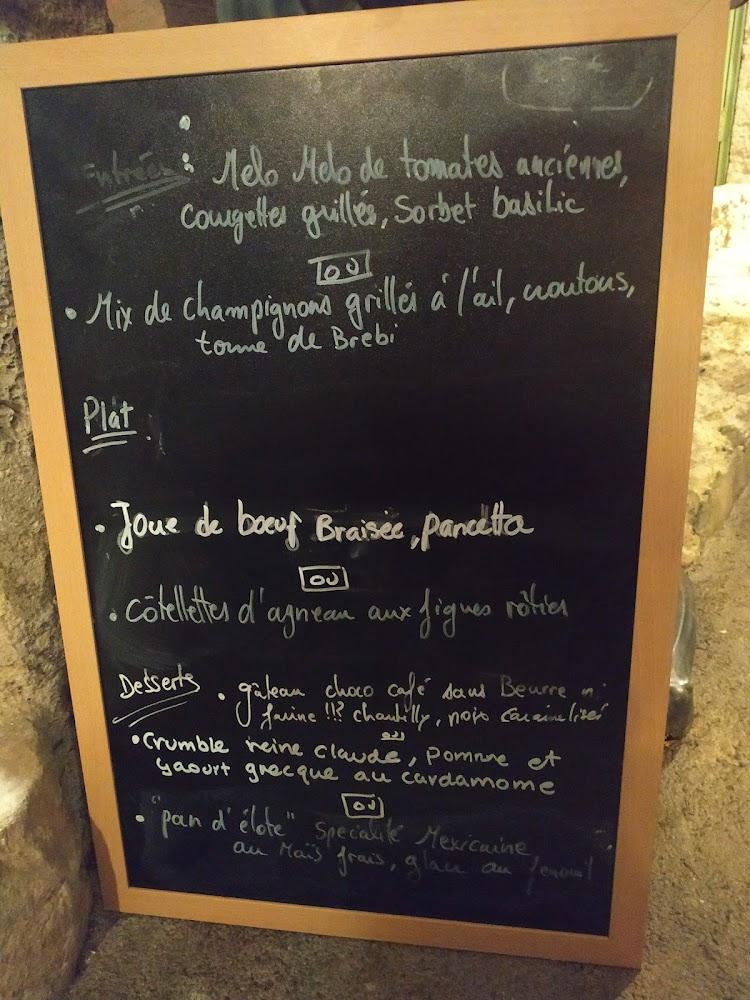 Entrées : Melo Melo de tomates anciennes,
courgettes grillés, Sorbet basilic
ou
• Mix de champignons grillés à l'ail, croutons,
tomme de Brebi
Plat
• Joue de boeuf Braisée, pancetta
ou
• Côtellettes d'agneau aux figues rôties
Desserts • gâteau choco café sans Beurre ni
farine !!! chantilly, noix caramelisés
ou
• Crumble reine claude, pomme et
yaourt grecque au cardamome
ou
• "pan d'élote" Spécialité Mexicaine
au Maïs frais, glace au fenouil